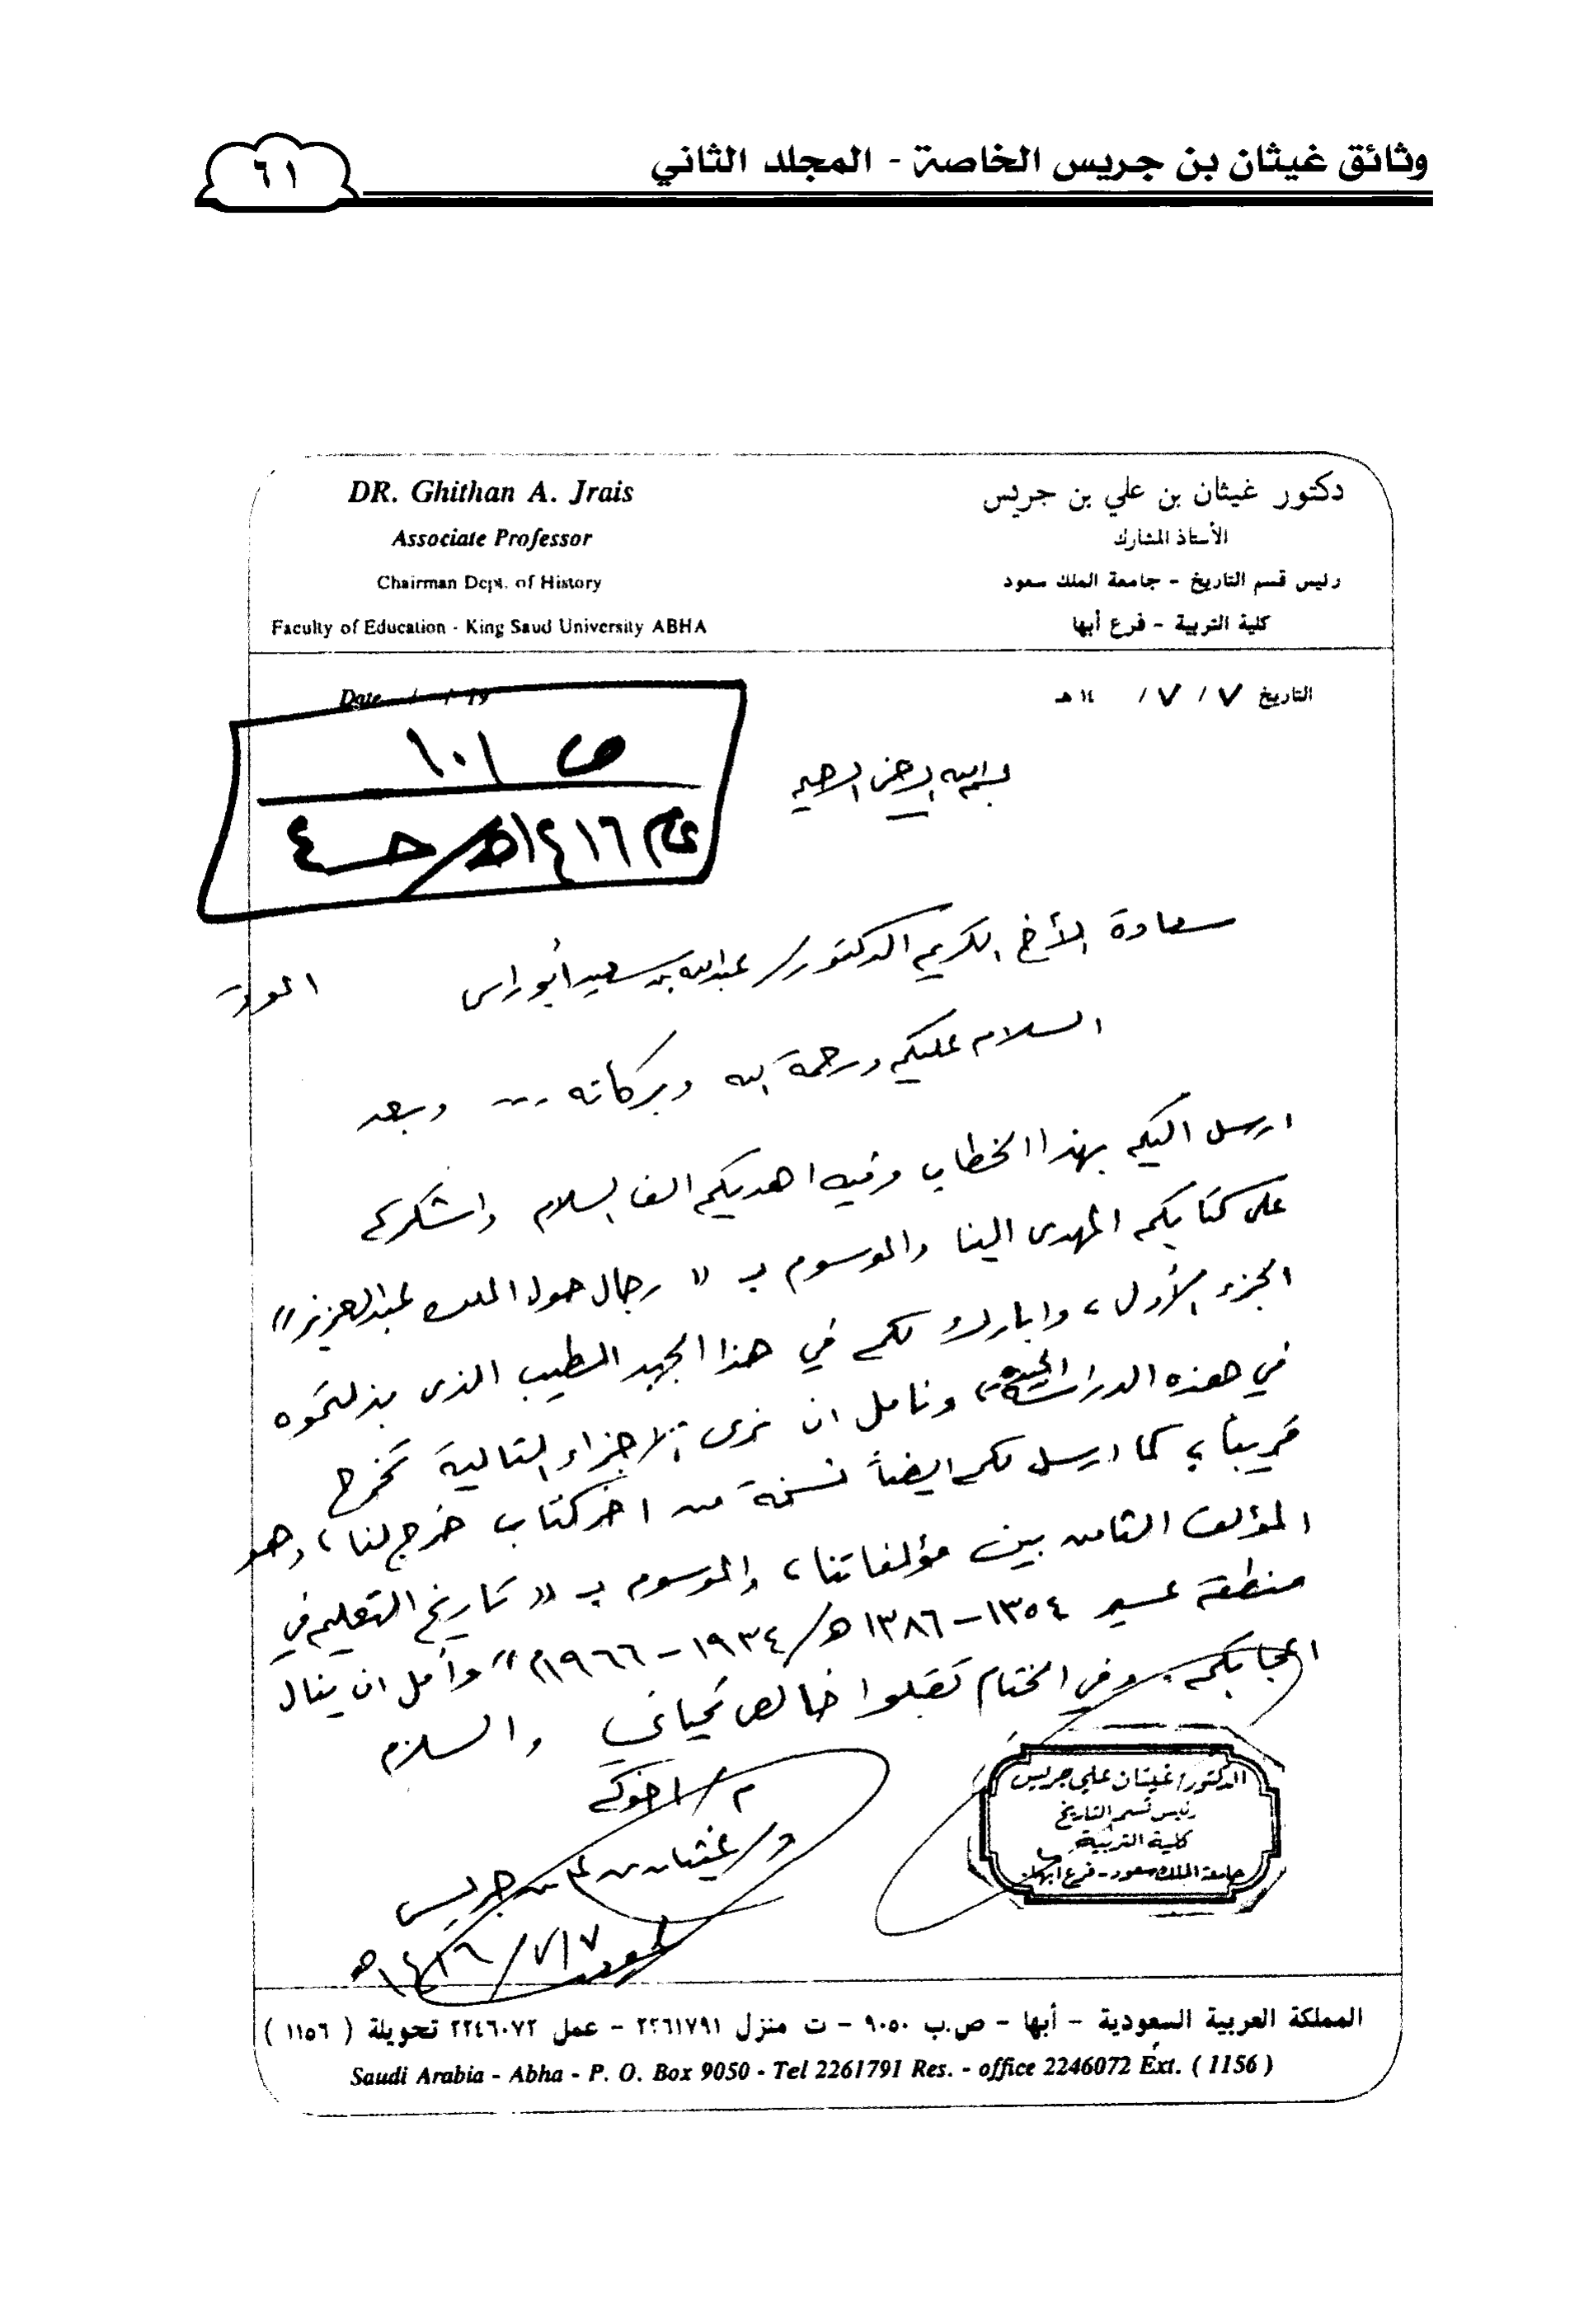 وثائق غيثان بن جريس الخاصة - المجلد الثاني
٦١
دكتور غيثان بن علي بن جريس
الأستاذ المشارك
رئيس قسم التاريخ - جامعة الملك سعود
كلية التربية - فرع أبها
DR. Ghithan A. Jrais
Associate Professor
Chairman Dept. of History
Faculty of Education - King Saud University ABHA
التاريخ ٧ / ٧ / ١٤ هـ
Date / / 19
ص ١٠١
عام ١٤١٦هـ/ حـ ٤
بسم الله الرحمن الرحيم
سعادة الأخ الكريم الدكتور/ عبدالله بن سعيد أبوراس الموقر
السلام عليكم ورحمة الله وبركاته ... وبعد
ارسل اليكم بهذا الخطاب وفيه اهديكم الف السلام واشكركم
على كتابكم المهدى الينا والموسوم بـ " رجال حول الملك عبدالعزيز "
الجزء الأول، وابارك لكم في هذا الجهد الطيب الذى بذلتموه
في هذه الدراسة الجيدة، ونامل ان نرى الاجزاء التالية تخرج
قريباً، كما ارسل لكم ايضاً نسخة من اخر كتاب خرج لنا، وهو
المؤلف الثامن بين مؤلفاتنا، والموسوم بـ " تاريخ التعليم في
منطقة عسير ١٣٥٤-١٣٨٦هـ/ ١٩٣٤-١٩٦٦م " وآمل ان ينال
اعجابكم. وفي الختام تقبلوا خالص تحياتي والسلام
م/ اخوكم
د/ غيثان بن علي بن جريس
٧/٧/١٤١٦هـ
الدكتور/ غيثان علي جريس
رئيس قسم التاريخ
كلية التربية
جامعة الملك سعود - فرع ابها
المملكة العربية السعودية - أبها - ص.ب ٩٠٥٠ - ت منزل ٢٢٦١٧٩١ - عمل ٢٢٤٦٠٧٢ تحويلة ( ١١٥٦ )
Saudi Arabia - Abha - P. O. Box 9050 - Tel 2261791 Res. - office 2246072 Ext. ( 1156 )